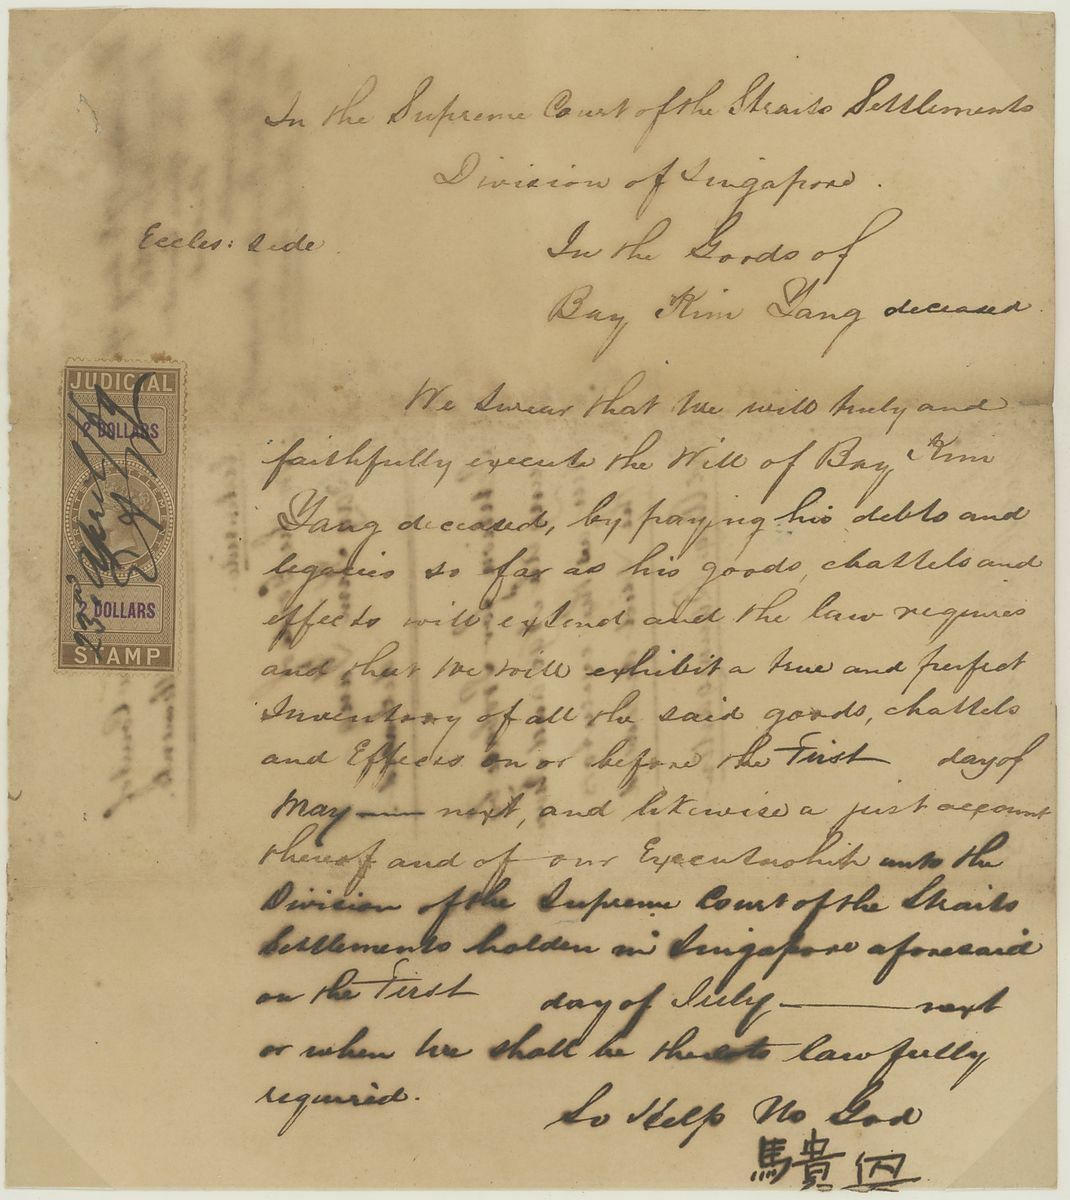 In the Supreme Court of the Straits Settlements
Division of Singapore.
Eccles: side
In the Goods of
Bay Kim Yang deceased.
JUDICIAL
2 DOLLARS
23rd April /69
2 DOLLARS
STAMP
We swear that we will truly and
faithfully execute the Will of Bay Kim
Yang deceased, by paying his debts and
legacies so far as his goods, chattels and
effects will extend and the law requires
and that we will exhibit a true and perfect
Inventory of all the said goods, chattels
and Effects on or before the First day of
May next, and likewise a just account
thereof and of our Executorship unto the
Division of the Supreme Court of the Straits
Settlements holden in Singapore aforesaid
on the First day of July next
or when we shall be thereto lawfully
required.
So Help Us God
馬貴